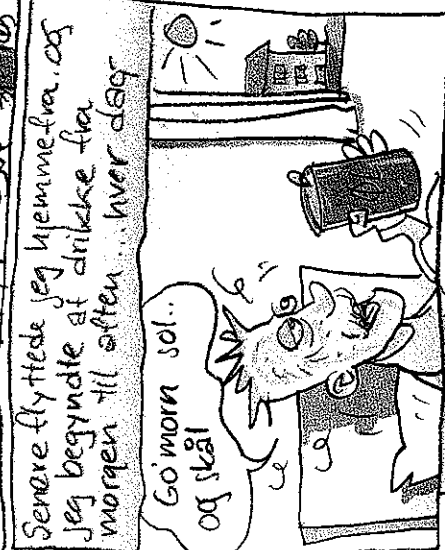 Senere flyttede jeg hjemmefra.og
jeg begyndte at drikke fra
morgen til aften...hver dag
Go'morn sol..
og skål